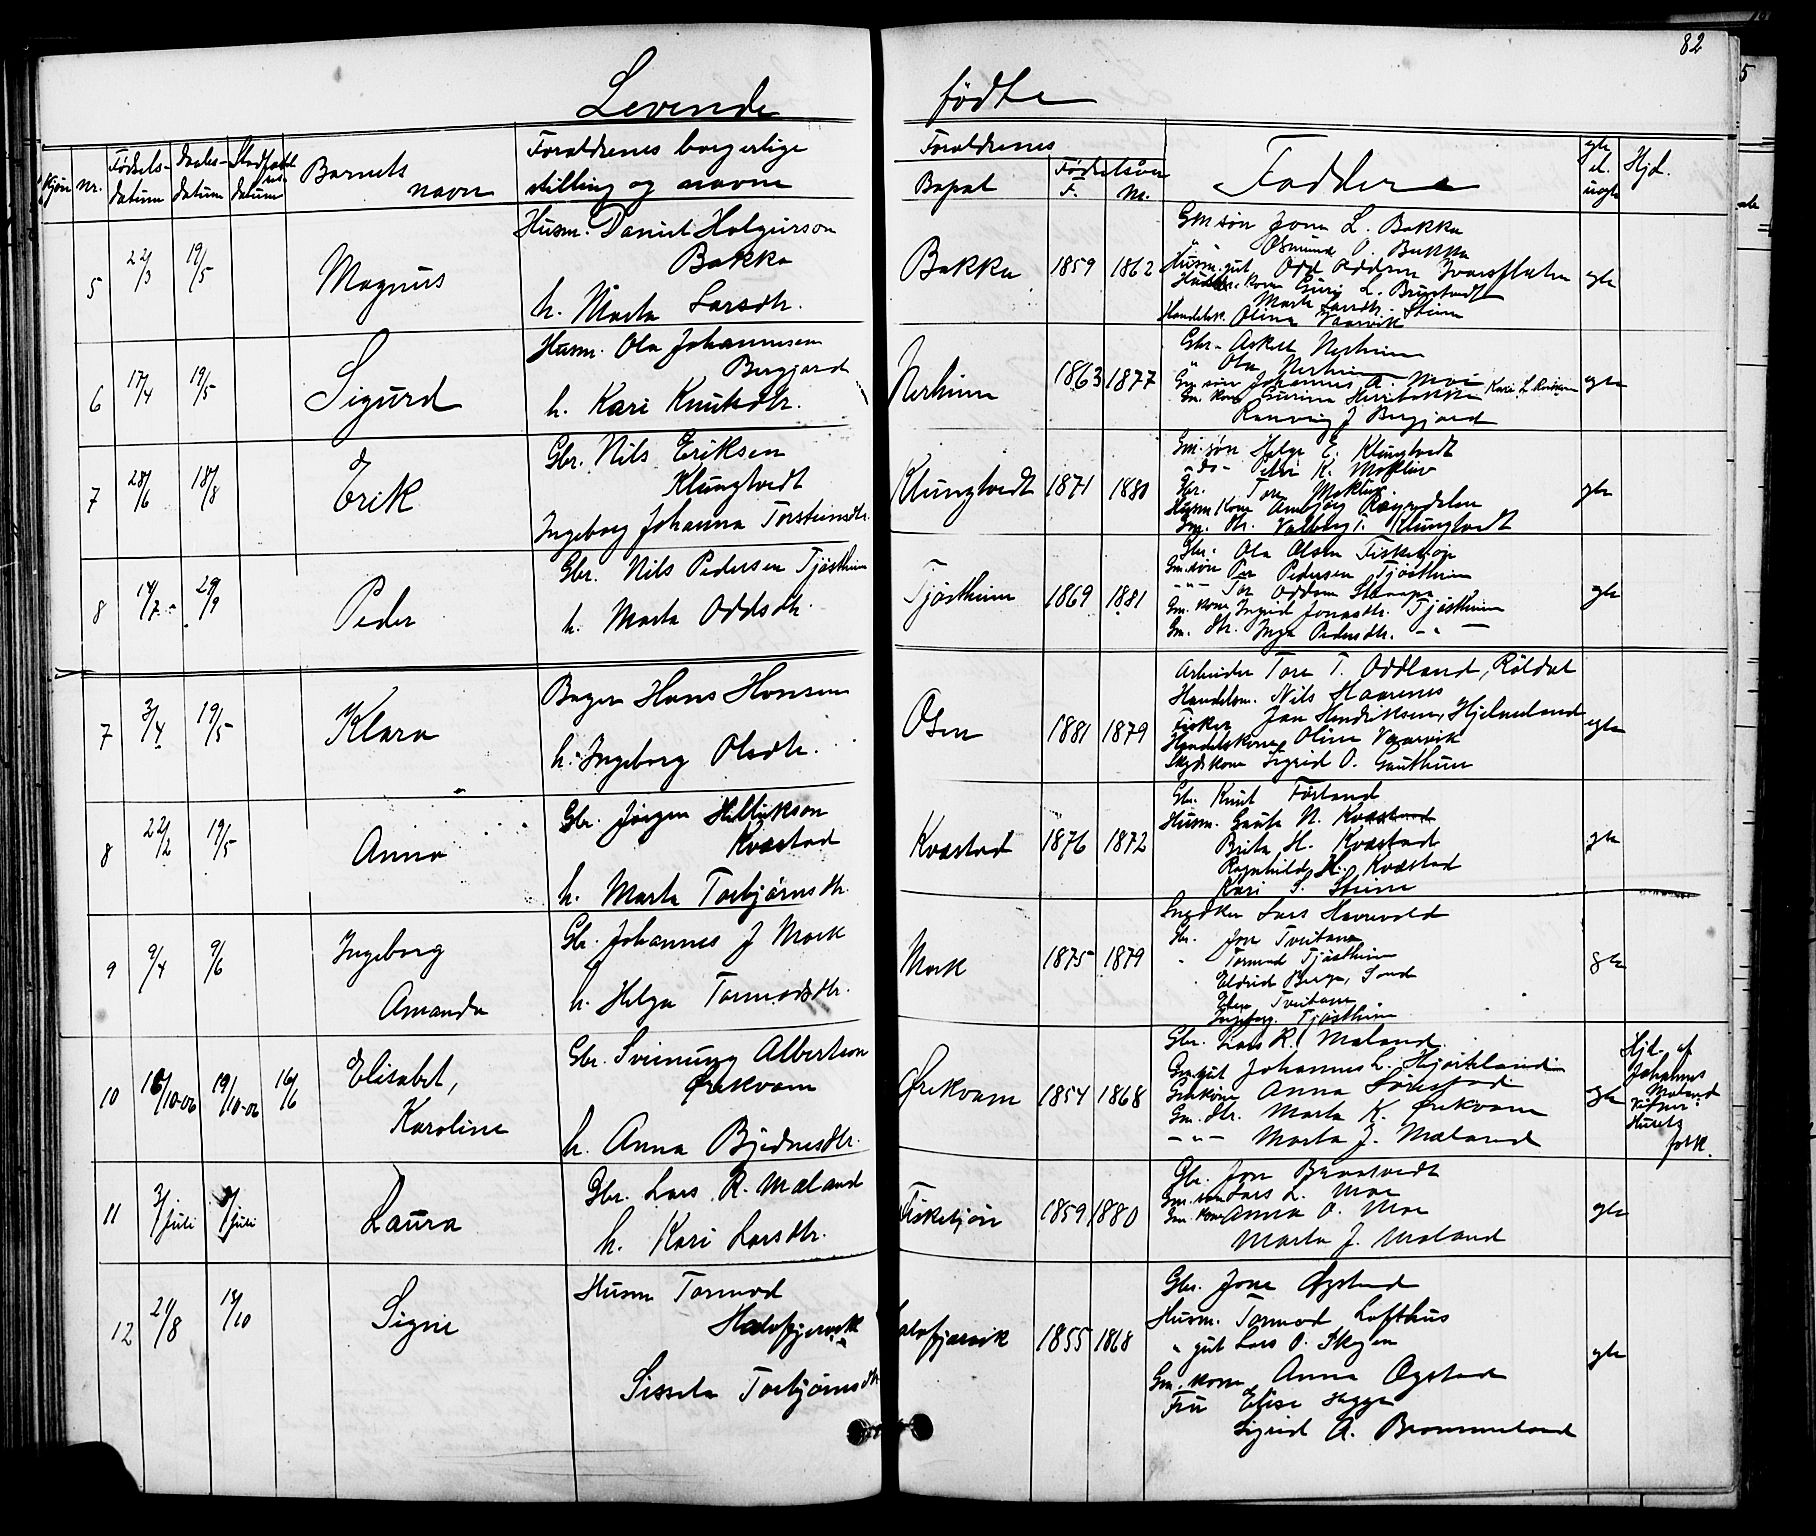 82
Levende fødte
Kjøn
nr.
Fødsels-
datum
daabs-
datum
Stadfæst
datum
Barnets
navn
Forældrenes borgerlige
stilling og navne
Forældrenes
Bopæl
Fødselsaar
F.
M.
Faddere
gte
el.
uægte
Hjd.
5
22/3
19/5
Magnus
Husm. Daniel Holgerson
Bakka
h. Marta Larsdtr.
Bakka
1859
1862
Gm søn Jone L. Bakka
Osmund O. Bakka
Husm. gut Odd Oddsen
kone Guri L. Brustvedt
Marta Larsdtr. Steine
Handelsk. Oline Vaarvik
gte
6
17/4
19/5
Sigurd
Husm. Ola Johannesen
Bergjord
h. Kari Knutsdtr.
Nerheim
1863
1877
Gbr. Askell Nerheim
" Ola Nerheim
Gm søn Johannes A. Moe
Gm. kone Gurine
Ranveig J Bergjord
gte
7
28/6
18/8
Erik
Gbr. Nils Eriksen
Klungtvedt
Ingeborg Johanna Torsteinsdtr.
Klungtvedt
1871
1880
Gm. søn Helge E. Klungtvedt
- ds - Peder K. Mokleiv
Gbr. Tore Mokleiv
Husm. kone
Gm. dtr. Valborg T. Klungtvedt
gte
8
14/7
29/9
Peder
Gbr. Nils Pedersen Tjøstheim
h. Marta Oddsdtr.
Tjøstheim
1869
1881
Gbr. Ola Olsen Fisketjøn
Gm. søn Per Pedersen Tjøstheim
- " - Tor Oddsen
Gm. kone Ingrid Jonasdtr. Tjøstheim
Gm. dtr. Inga Pedersdtr. - " -
gte
7
3/4
19/5
Klara
Bager Hans Hansen
h. Ingeborg Olsdtr.
Osen
1881
1879
Arbeider Tore T. Oddland, Røldal
Handelsm. Nils Haarenes
Fisker Jan Hendriksen, Hjelmeland
Handelskone Oline Vaarvik
Skydskone Sigrid O. Gautheim
gte
8
22/2
19/5
Anna
Gbr. Jørgen Helliekson
Kvæstad
h. Marta Torbjørnsdtr.
Kvæstad
1876
1872
Gbr. Knut Førland
Husm. Gaute N. Kvæstad
Brita H. Kvæstad
Ragnhild H. Kvæstad
Kari S. Steine
gte
9
9/4
9/6
Ingeborg
Amanda
Gbr. Johannes J Mork
h. Helga Tormodsdtr.
Mork
1875
1879
Lars Havrevold
Gbr. Jon Tveitane
" Tormod Tjøstheim
Eldrid Berge, Sand
Elen Tveitane
Ingeborg Tjøstheim
gte
10
16/10-06
19/10-06
16/6
Elisabet,
Karoline
Gbr. Sveinung Albertson
Ørekvam
h. Anna Bjednesdtr.
Ørekvam
1854
1868
Gbr. Lars R. Mæland
Gm. gut Johannes L. Hjorteland
Gm. kone Anna Sørestad
Gm. dtr. Marta K. Ørekvam
- " - Marta J. Mæland
gte
Hjd. af
Johannes
Mæland
Vitner:
Husets
folk.
11
3/juli
7/juli
Laura
Gbr. Lars R. Mæland
h. Kari Larsdtr.
Fisketjøn
1859
1880
Gbr. Jon Braatvedt
Gm. søn Lars L. Moe
Gm. kone Anna O. Moe
Marta J. Mæland
gte
12
21/8
18/10
Signe
Husm Tormod
Halvfjervik
Sissela Torbjørnsdtr
Halvfjærvik
1855
1868
Gbr. Jone Øgstad
Husm. Tormod Lofthus
" gut Lars O. Skogen
Gm. kone Anna Øgstad
Fru Elise Hegge
Sigrid A. Brommeland
gte